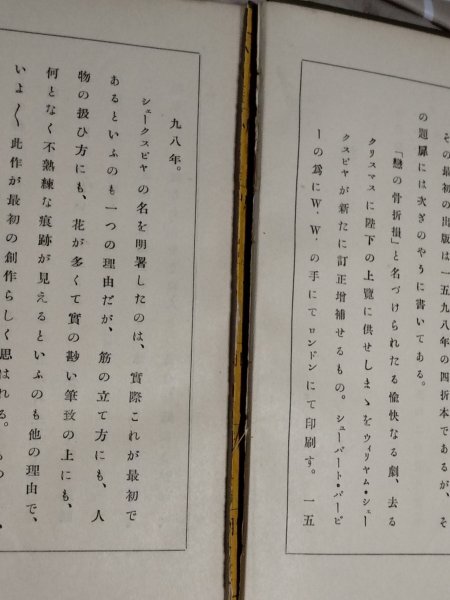 その最初の出版は一五九八年の四折本であるが、そ
の題扉には次ぎのやうに書いてある。
「戀の骨折損」と名づけられたる愉快なる劇、去る
クリスマスに陛下の上覽に供せしまゝをウィリヤム・シェー
クスピヤが新たに訂正增補せるもの。シューバート・バービ
ーの爲にW.W.の手にてロンドンにて印刷す。一五
九八年。
シェークスピヤの名を明署したのは、實際これが最初で
あるといふのも一つの理由だが、筋の立て方にも、人
物の扱ひ方にも、花が多くて實の尠い筆致の上にも、
何となく不熟練な痕跡が見えるといふのも他の理由で、
いよ〳〵此作が最初の創作らしく思はれる。